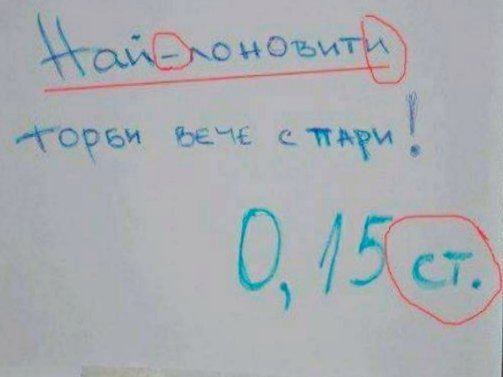 Най-лоновити
торби вече с пари!
0,15 ст.